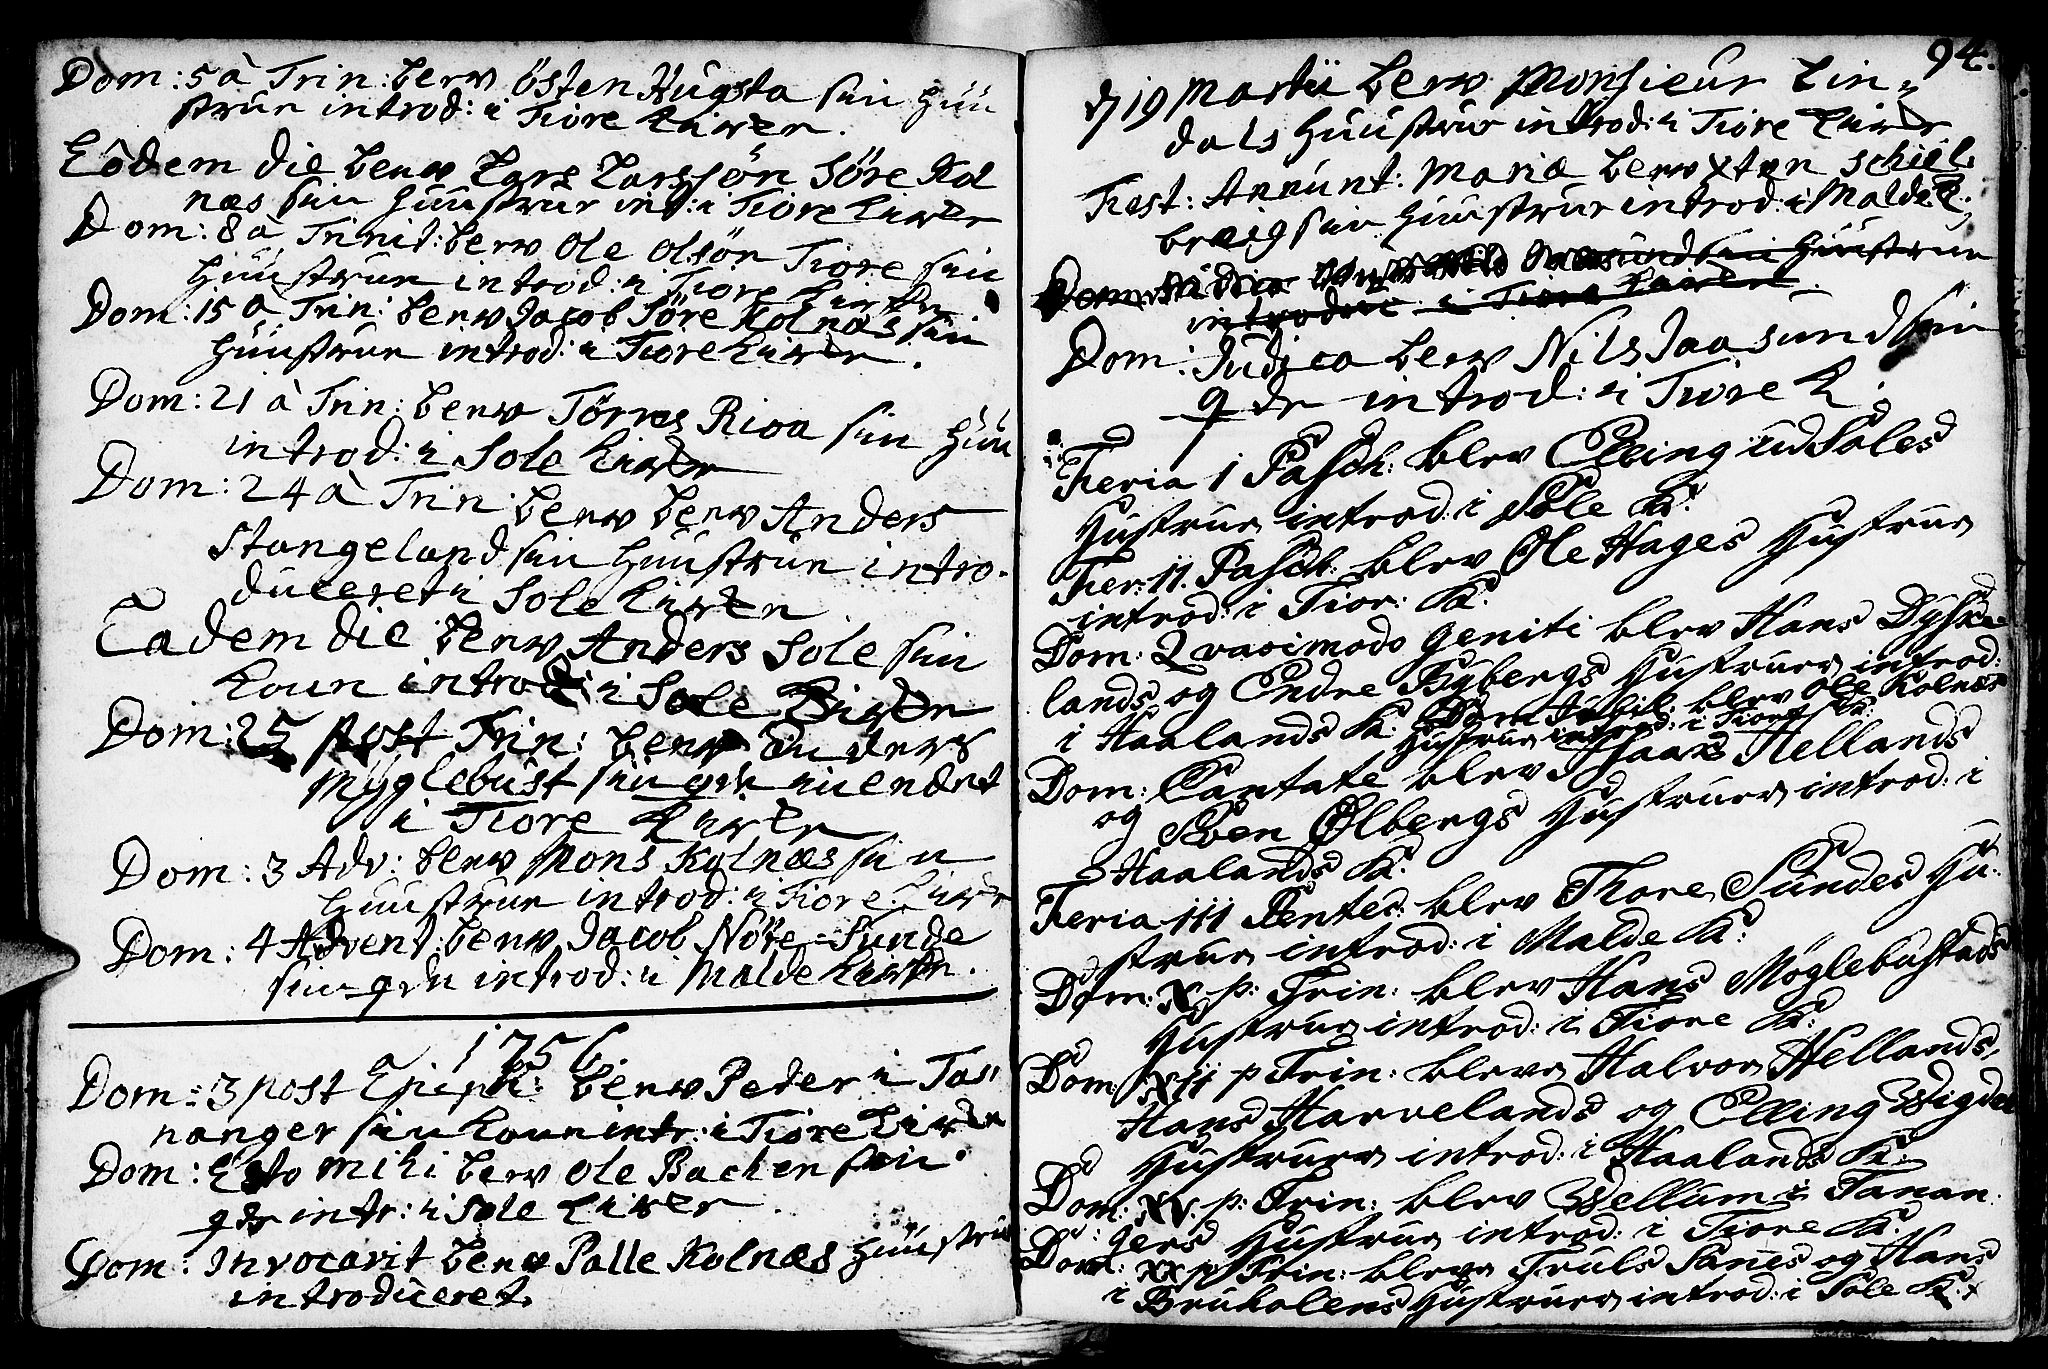 Dom: 5 à Trin: blew Östen Kugsta sin Huu
strue introd: i Tiore kircke.
Eôdem die blew Lars Larssön Söre Kol
næs sin Huustrue int: i Tiore kircke
Dom: 8 à Trinit: blew Ole Olsön Tiore sin
Huustrue introd: i Tiore kircke
Dom: 15 à Trin: blew Jacob Söre Kolnæs sin
Huustrue introd: i Tiore kircke.
Dom: 21 à Trin: blew Törres Risa sin Huu
introd: i Sole kircke
Dom: 24 à Trin: blew blew Anders
Stangeland sin Huustrue intro-
duceret i Sole kircke
Eadem die blew Anders Sole sin
kone introd: i Sole kircke
Dom: 25 post Trin: blew
Myglebust sin qde
i Tiore kircke
Dom: 3 Adv: blew Mons Kolnæs sin
Huustrue introd: i Tiore kircke
Dom: 4 Advent: blew Jacob Nöre-Sunde
sin qde introd: i Malde kircke.
1756
Dom: 3 post Epiph: blew Peder i Ta-
nanger sin kone intr: i Tiore kircke
Dom: Esto mihi blew Ole Bachen sin
qde intr: i Sole kircke.
Dom: Invocavit blew Palle Kolnæs Huustrue
introduceret.
94.
d 19 Martii blew Monsieur Lin-
dals Huustrue introd: i Tiore kircke
Fest: Annunt: Mariæ blew Xten Schiel-
bræig sin Huustrue introd: i Malde K.
Dom: Huustrue
introduc: i Tiore kircke.
Dom: Judica blew Nils Jaasund sin
qde introd: i Tiore K.
Feria 1 Pasch: blev Elling ud Soles
Hustrue introd: i Sole K:
Fer: 11. Pasch: blev Ole Hages Hustrue
introd: i Tior: K:
Dom: Qvasimodo geniti blev Hans Dyske-
lands og Endre Bybergs Hustruer introd:
i Haalands K: Dom: Jubil: blev Ole Kolnæs
Hustrue introd: i Tiore K:
Dom: Cantate blev Isaac Hellands
og Sven Ølbergs Hustruer introd: i
Haalands K:
Feria 111 Pentec: blev Thore Sundes Hu-
strue introd: i Malde K:
Dom: X p: Trin: blev Hans Möglebustads
Hustrue introd: i Tiore K:
Dom: XII p Trin: bleve Halvor Hellands,
Hans Harvelands og Elling Wigdel
Hustruer introd: i Haalands K:
Dom: XV. p: Trin: blev Wellum i Tanan-
gers Hustrue introd: i Tiore K:
Dom: XX p Trin: bleve Truls Sanes og Hans
i Bruholens Hustruer introd: i Sole K: